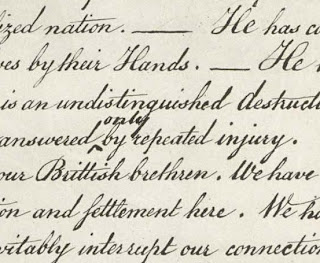 ized nation. — He has co
ves by their Hands. — He
is an undistinguished destruc
only
answered by repeated injury.
our Brittish brethren. We have
ion and settlement here. We ha
vitably interrupt our connection